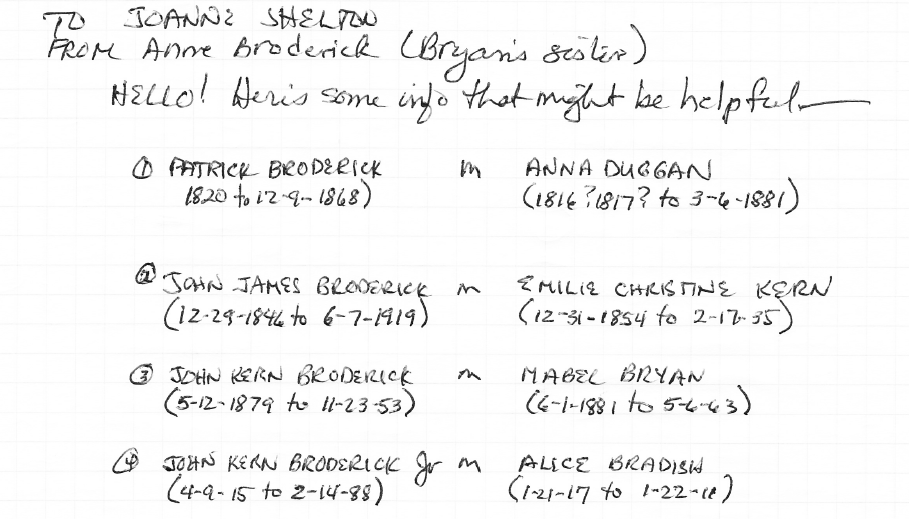 TO JOANNE SHELTON
FROM Anne Broderick (Bryan's sister)
HELLO! Here's some info that might be helpful—
① PATRICK BRODERICK m ANNA DUGGAN
1820 to 12-9-1868) (1816?1817? to 3-6-1881)
② JOHN JAMES BRODERICK m EMILIE CHRISTINE KERN
(12-29-1846 to 6-7-1919) (12-31-1854 to 2-17-35)
③ JOHN KERN BRODERICK m MABEL BRYAN
(5-12-1879 to 11-23-53) (6-1-1881 to 5-6-63)
④ JOHN KERN BRODERICK Jr m ALICE BRADISH
(4-9-15 to 2-14-88) (1-21-17 to 1-22-11)